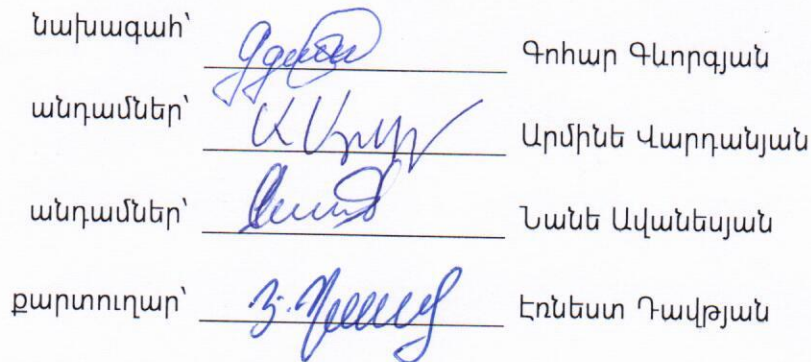 նախագահ՝ Գոհար Գևորգյան
անդամներ՝ Արմինե Վարդանյան
անդամներ՝ Նանե Ավանեսյան
քարտուղար՝ Էռնեստ Դավթյան